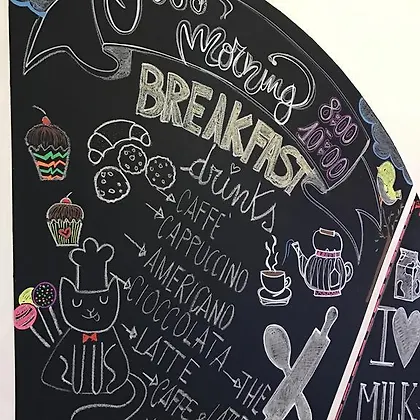 Good
morning
BREAKFAST
8:00
10:00
drinks
CAFFÈ
CAPPUCCINO
AMERICANO
CIOCCOLATA
LATTE
THE
CAFFE
I
MILK